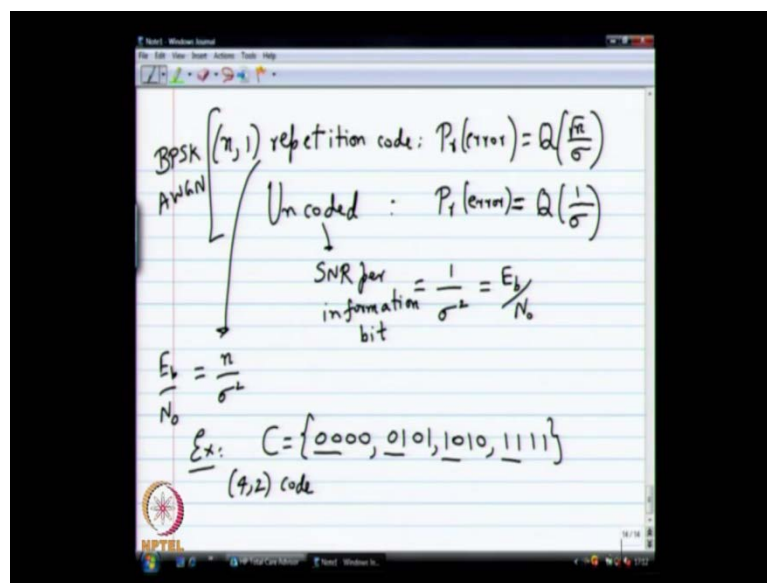 Note1 - Windows Journal
File Edit View Insert Actions Tools Help
BPSK AWGN
(n,1) repetition code: Pr(error) = Q(√n/σ)
Uncoded : Pr(error) = Q(1/σ)
SNR per information bit = 1/σ² = Eb/N0
Eb/N0 = n/σ²
Ex: C = {0000, 0101, 1010, 1111}
(4,2) code
NPTEL
HP Total Care Advisor
Note1 - Windows Jo...